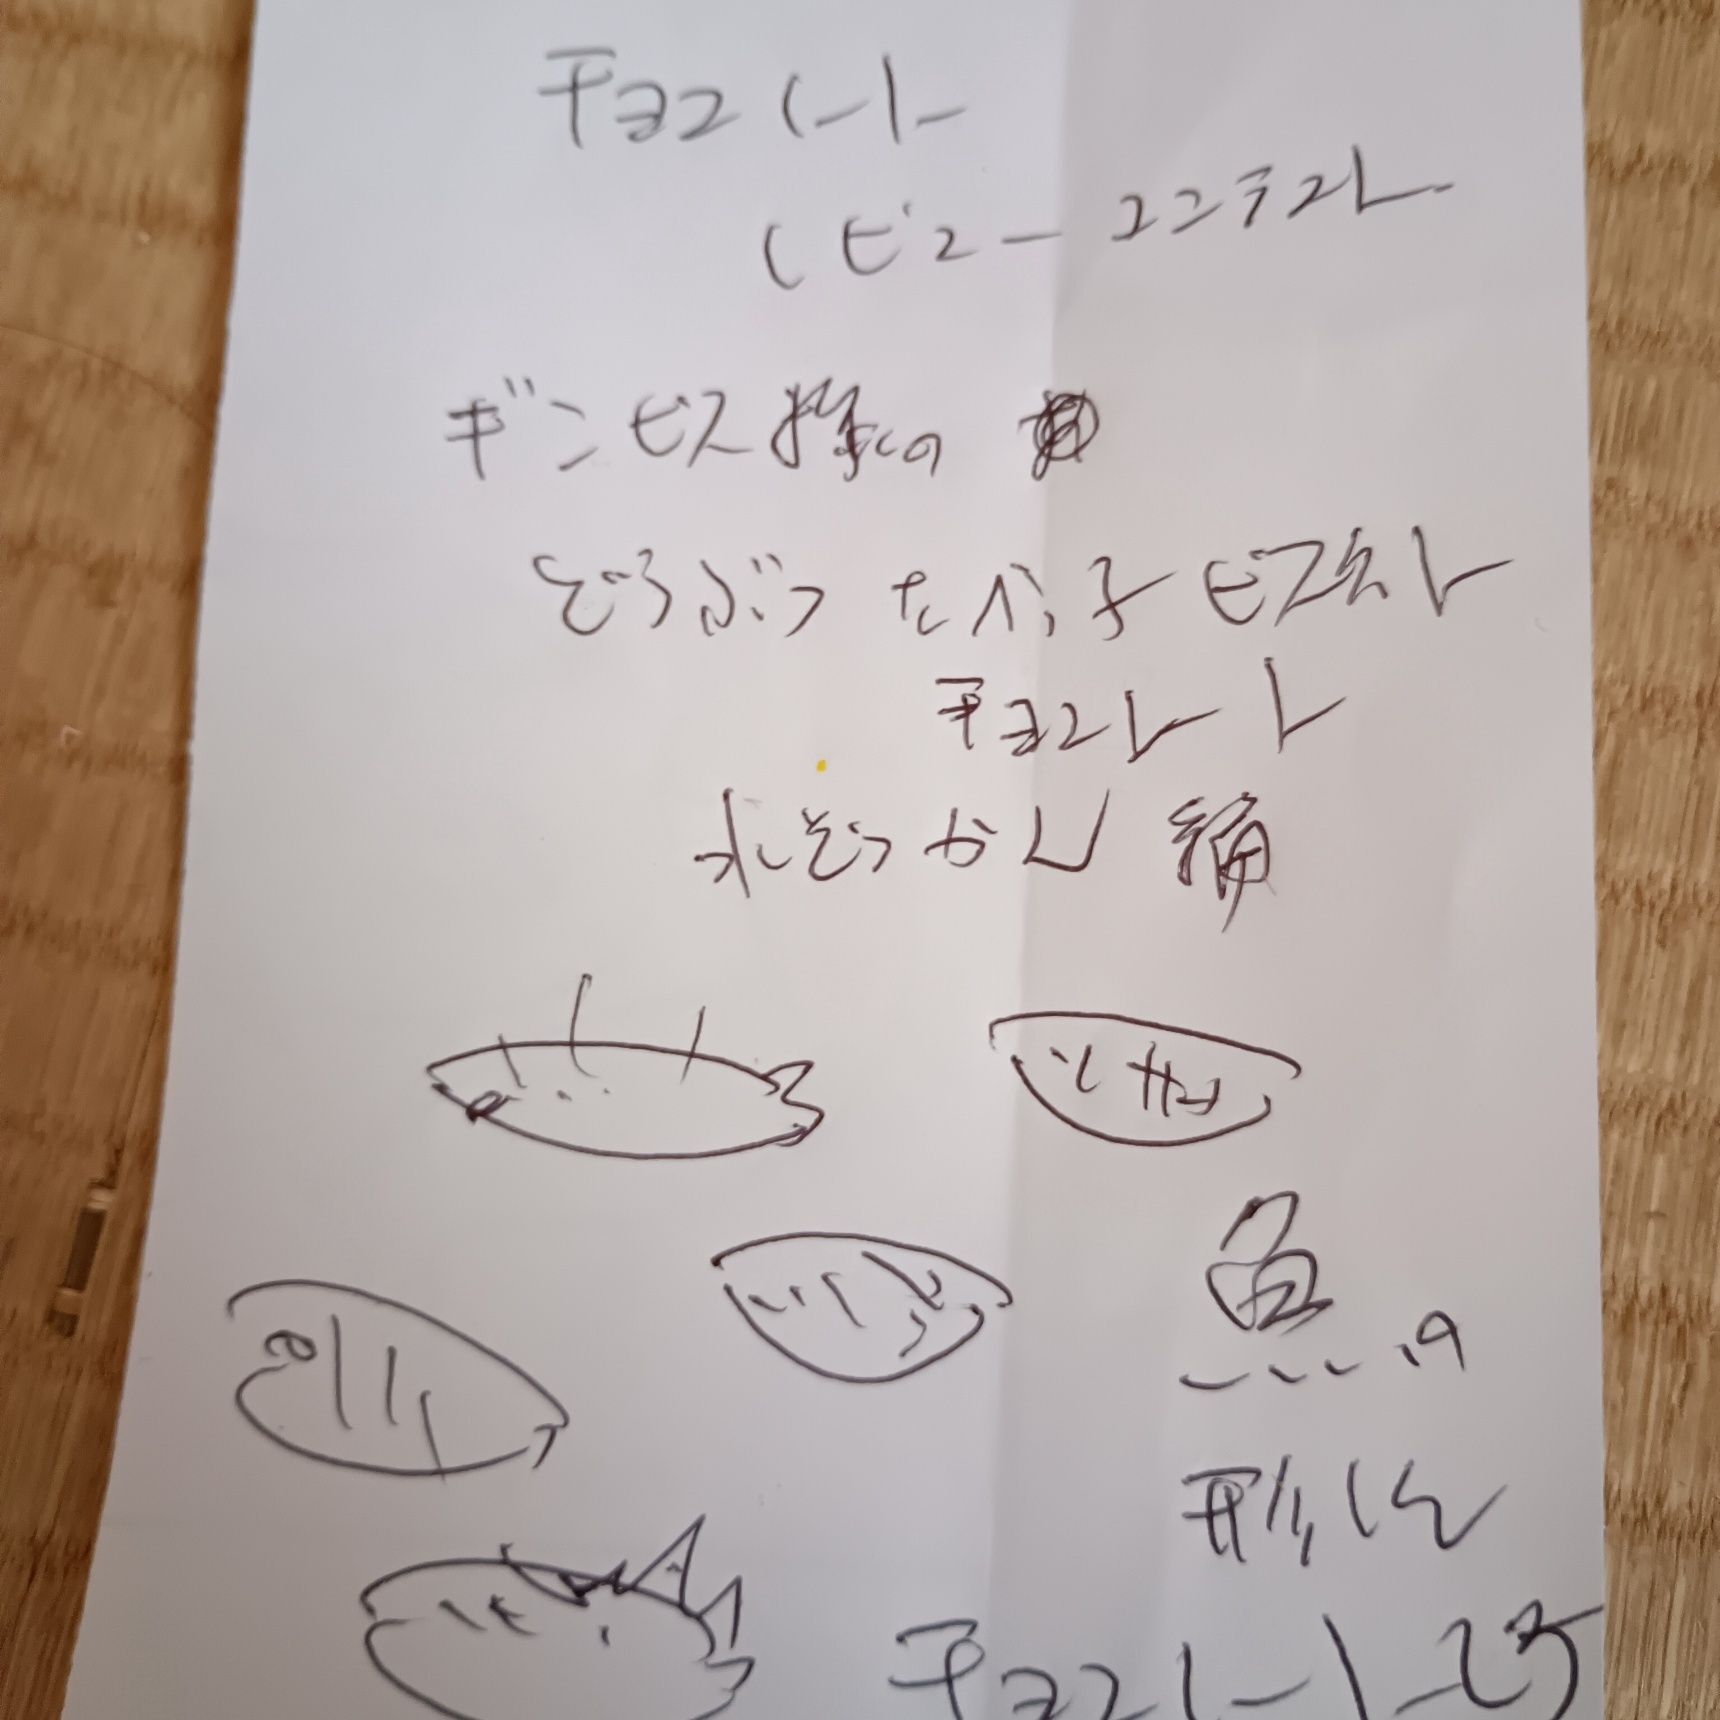 チョコレート
レビューコンテスト
ギンビス様の
どうぶつたべっ子ビスケット
チョコレート
水ぞっかん編
魚の
形に
チョコレート